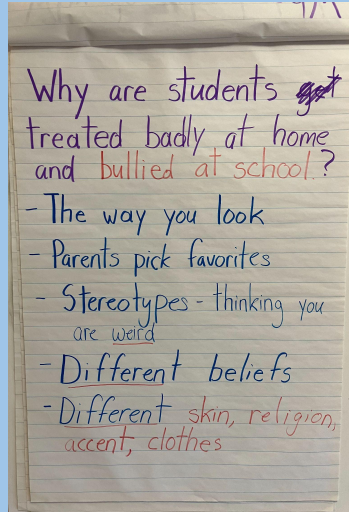 Why are students
treated badly at home
and bullied at school?
- The way you look
- Parents pick favorites
- Stereotypes - thinking you
are weird
- Different beliefs
- Different skin, religion,
accent, clothes